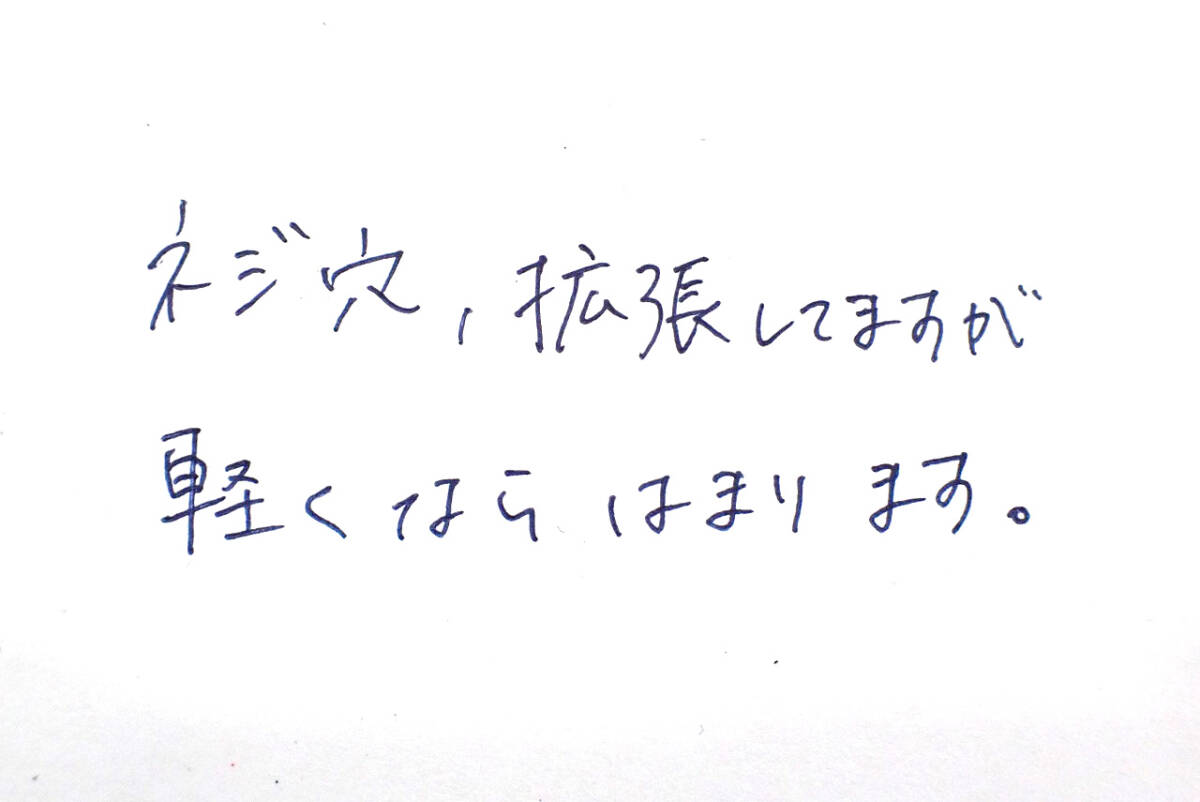 ネジ穴,拡張してますが
軽くならはまります。